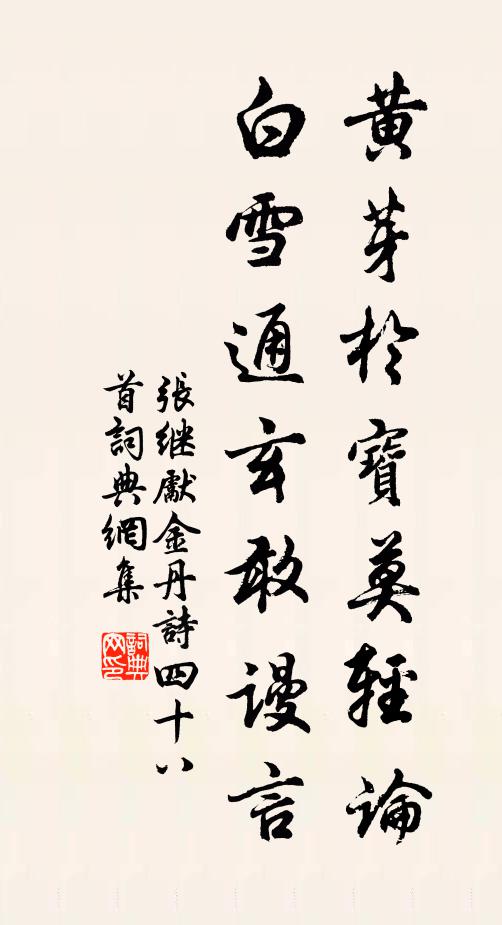 黄芽於寶莫輕論
白雪通玄敢謾言
張继獻金丹詩四十八
首詞典網集
詞典
网印